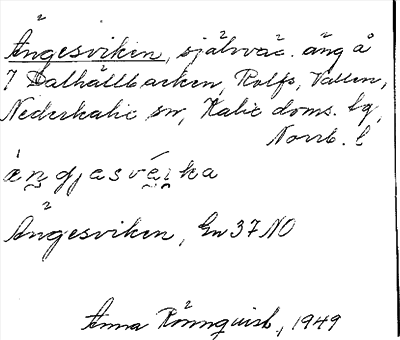 Ängesviken, självväc. äng å
7 Dalhällbacken, Rolfs, Vallen,
Nederkalix sn, Kalix doms. lg,
Norrb. l
ängjesvéika
Ängesviken, Gn 37 NO
Anna Rönnquist, 1949